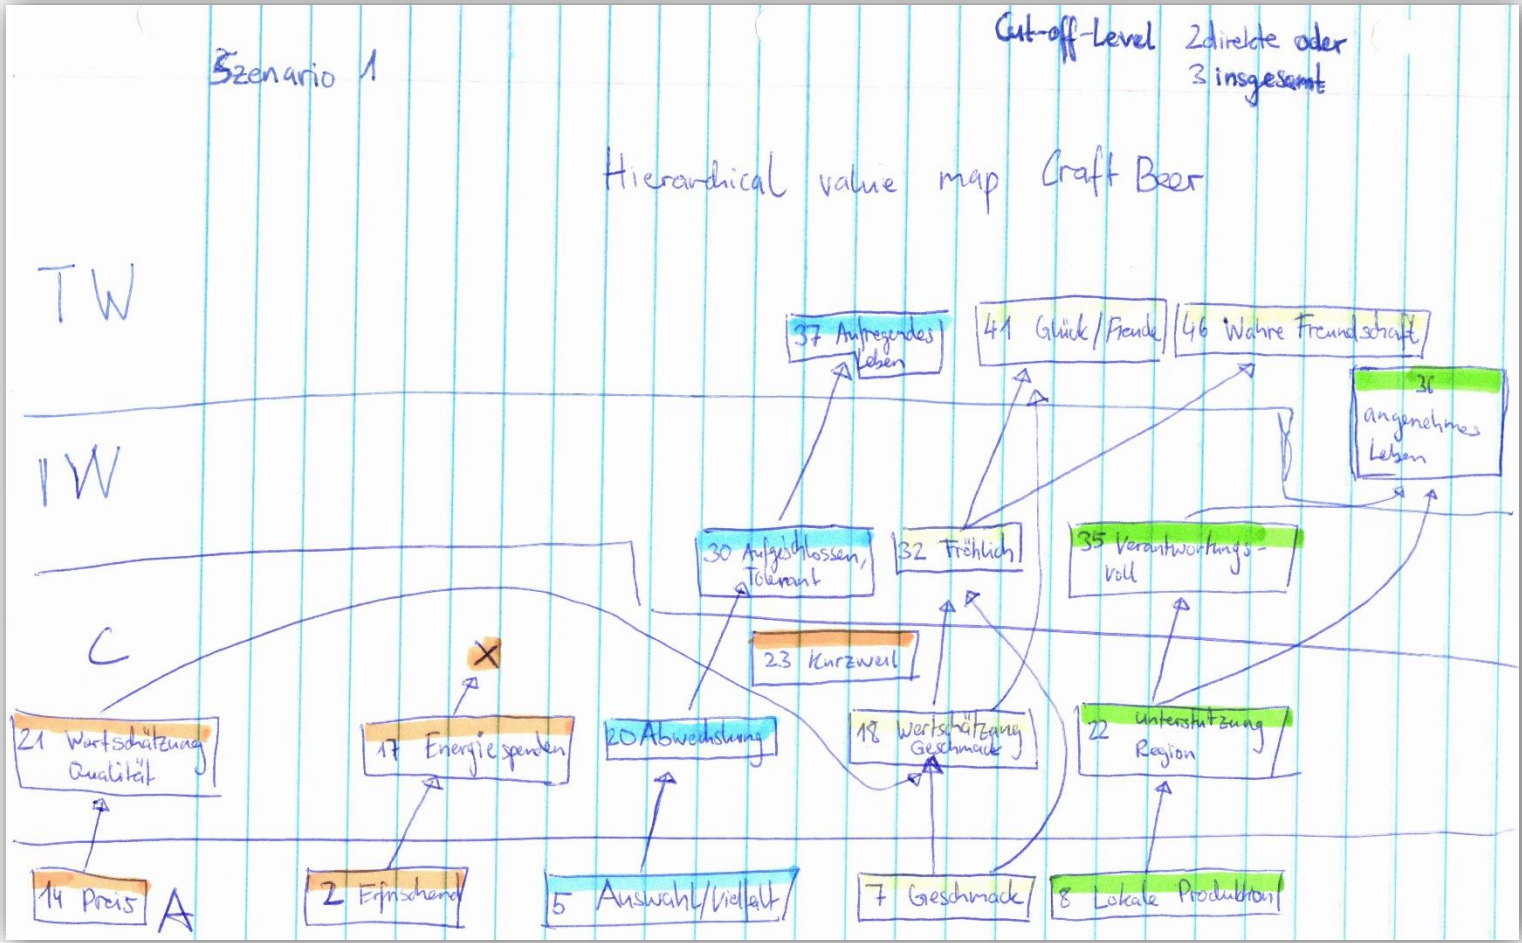 Szenario 1
Cut-off-Level 2 direkte oder
3 insgesamt
Hierarchical value map Craft Beer
TW
37 Aufregendes
Leben
41 Glück/Freude
46 Wahre Freundschaft
36
angenehmes
Leben
IW
30 Aufgeschlossen,
Tolerant
32 Fröhlich
35 Verantwortungs-
voll
C
X
23 Kurzweil
21 Wertschätzung
Qualität
17 Energie spenden
20 Abwechslung
18 Wertschätzung
Geschmack
22 Unterstützung
Region
14 Preis
A
2 Erfrischend
5 Auswahl/Vielfalt
7 Geschmack
8 Lokale Produktion